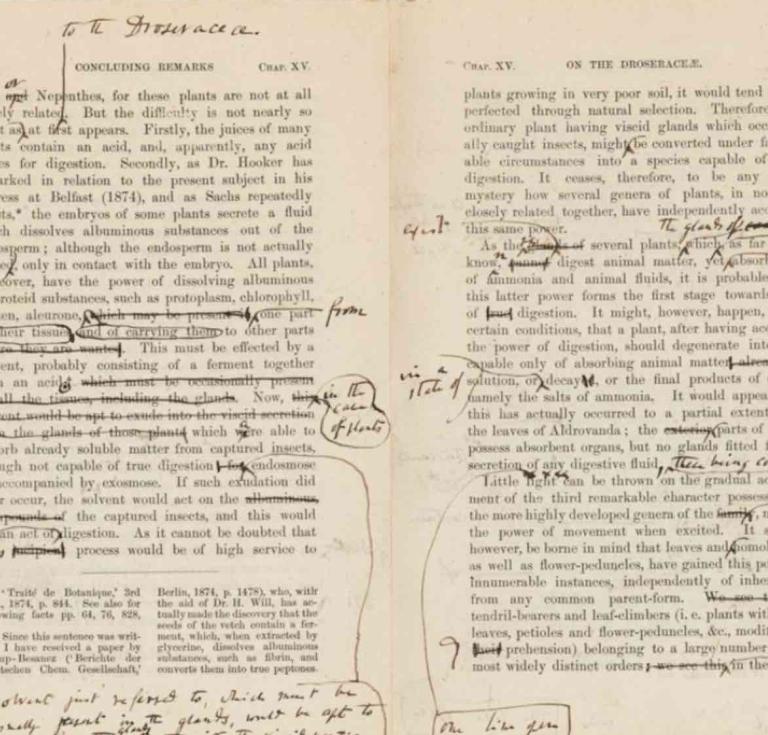 to the Droseraceæ.
CONCLUDING REMARKS CHAP. XV.
or
and Nepenthes, for these plants are not at all
ly related. But the difficulty is not nearly so
t as at first appears. Firstly, the juices of many
ts contain an acid, and, apparently, any acid
es for digestion. Secondly, as Dr. Hooker has
arked in relation to the present subject in his
ress at Belfast (1874), and as Sachs repeatedly
ts,* the embryos of some plants secrete a fluid
ch dissolves albuminous substances out of the
osperm; although the endosperm is not actually
ed, only in contact with the embryo. All plants,
eover, have the power of dissolving albuminous
roteid substances, such as protoplasm, chlorophyll,
en, aleurone, which may be present in one part from
heir tissues and of carrying them to other parts
re they are wanted. This must be effected by a
ent, probably consisting of a ferment together
h an acid; which must be occasionally present
all the tissues, including the glands. Now, this
in the
case
of plants
ent would be apt to exude into the viscid secretion
m the glands of those plants which were able to
orb already soluble matter from captured insects,
ugh not capable of true digestion; for endosmose
accompanied by exosmose. If such exudation did
r occur, the solvent would act on the albuminous
mpounds of the captured insects, and this would
an act of digestion. As it cannot be doubted that
incipient process would be of high service to
'Traité de Botanique,' 3rd
, 1874, p. 844. See also for
wing facts pp. 64, 76, 828,
Since this sentence was writ-
I have received a paper by
up-Besanez ('Berichte der
tschen Chem. Gesellschaft,'
Berlin, 1874, p. 1478), who, with
the aid of Dr. H. Will, has ac-
tually made the discovery that the
seeds of the vetch contain a fer-
ment, which, when extracted by
glycerine, dissolves albuminous
substances, such as fibrin, and
converts them into true peptones.
olvent just referred to, which must be
onally present in the glands, would be apt to
CHAP. XV. ON THE DROSERACEÆ.
plants growing in very poor soil, it would tend
perfected through natural selection. Therefore
ordinary plant having viscid glands which occ
ally caught insects, might be converted under fa
able circumstances into a species capable of
digestion. It ceases, therefore, to be any
mystery how several genera of plants, in no
closely related together, have independently ac
this same power.
The glands of
As the glands of several plants, which, as far
know, cannot digest animal matter, yet absorb
of ammonia and animal fluids, it is probable
this latter power forms the first stage towards
of true digestion. It might, however, happen,
certain conditions, that a plant, after having acq
the power of digestion, should degenerate into
capable only of absorbing animal matter alrea
in a
state of
solution, or decayed, or the final products of
namely the salts of ammonia. It would appea
this has actually occurred to a partial extent
the leaves of Aldrovanda; the exterior parts of
possess absorbent organs, but no glands fitted f
secretion of any digestive fluid, these being co
Little light can be thrown on the gradual ac
ment of the third remarkable character possess
the more highly developed genera of the family,
the power of movement when excited. It s
however, be borne in mind that leaves and homol
as well as flower-peduncles, have gained this po
innumerable instances, independently of inhe
from any common parent-form. We see t
tendril-bearers and leaf-climbers (i.e. plants wit
leaves, petioles and flower-peduncles, &c., modif
their prehension) belonging to a large number
most widely distinct orders; we see this in the
one line open